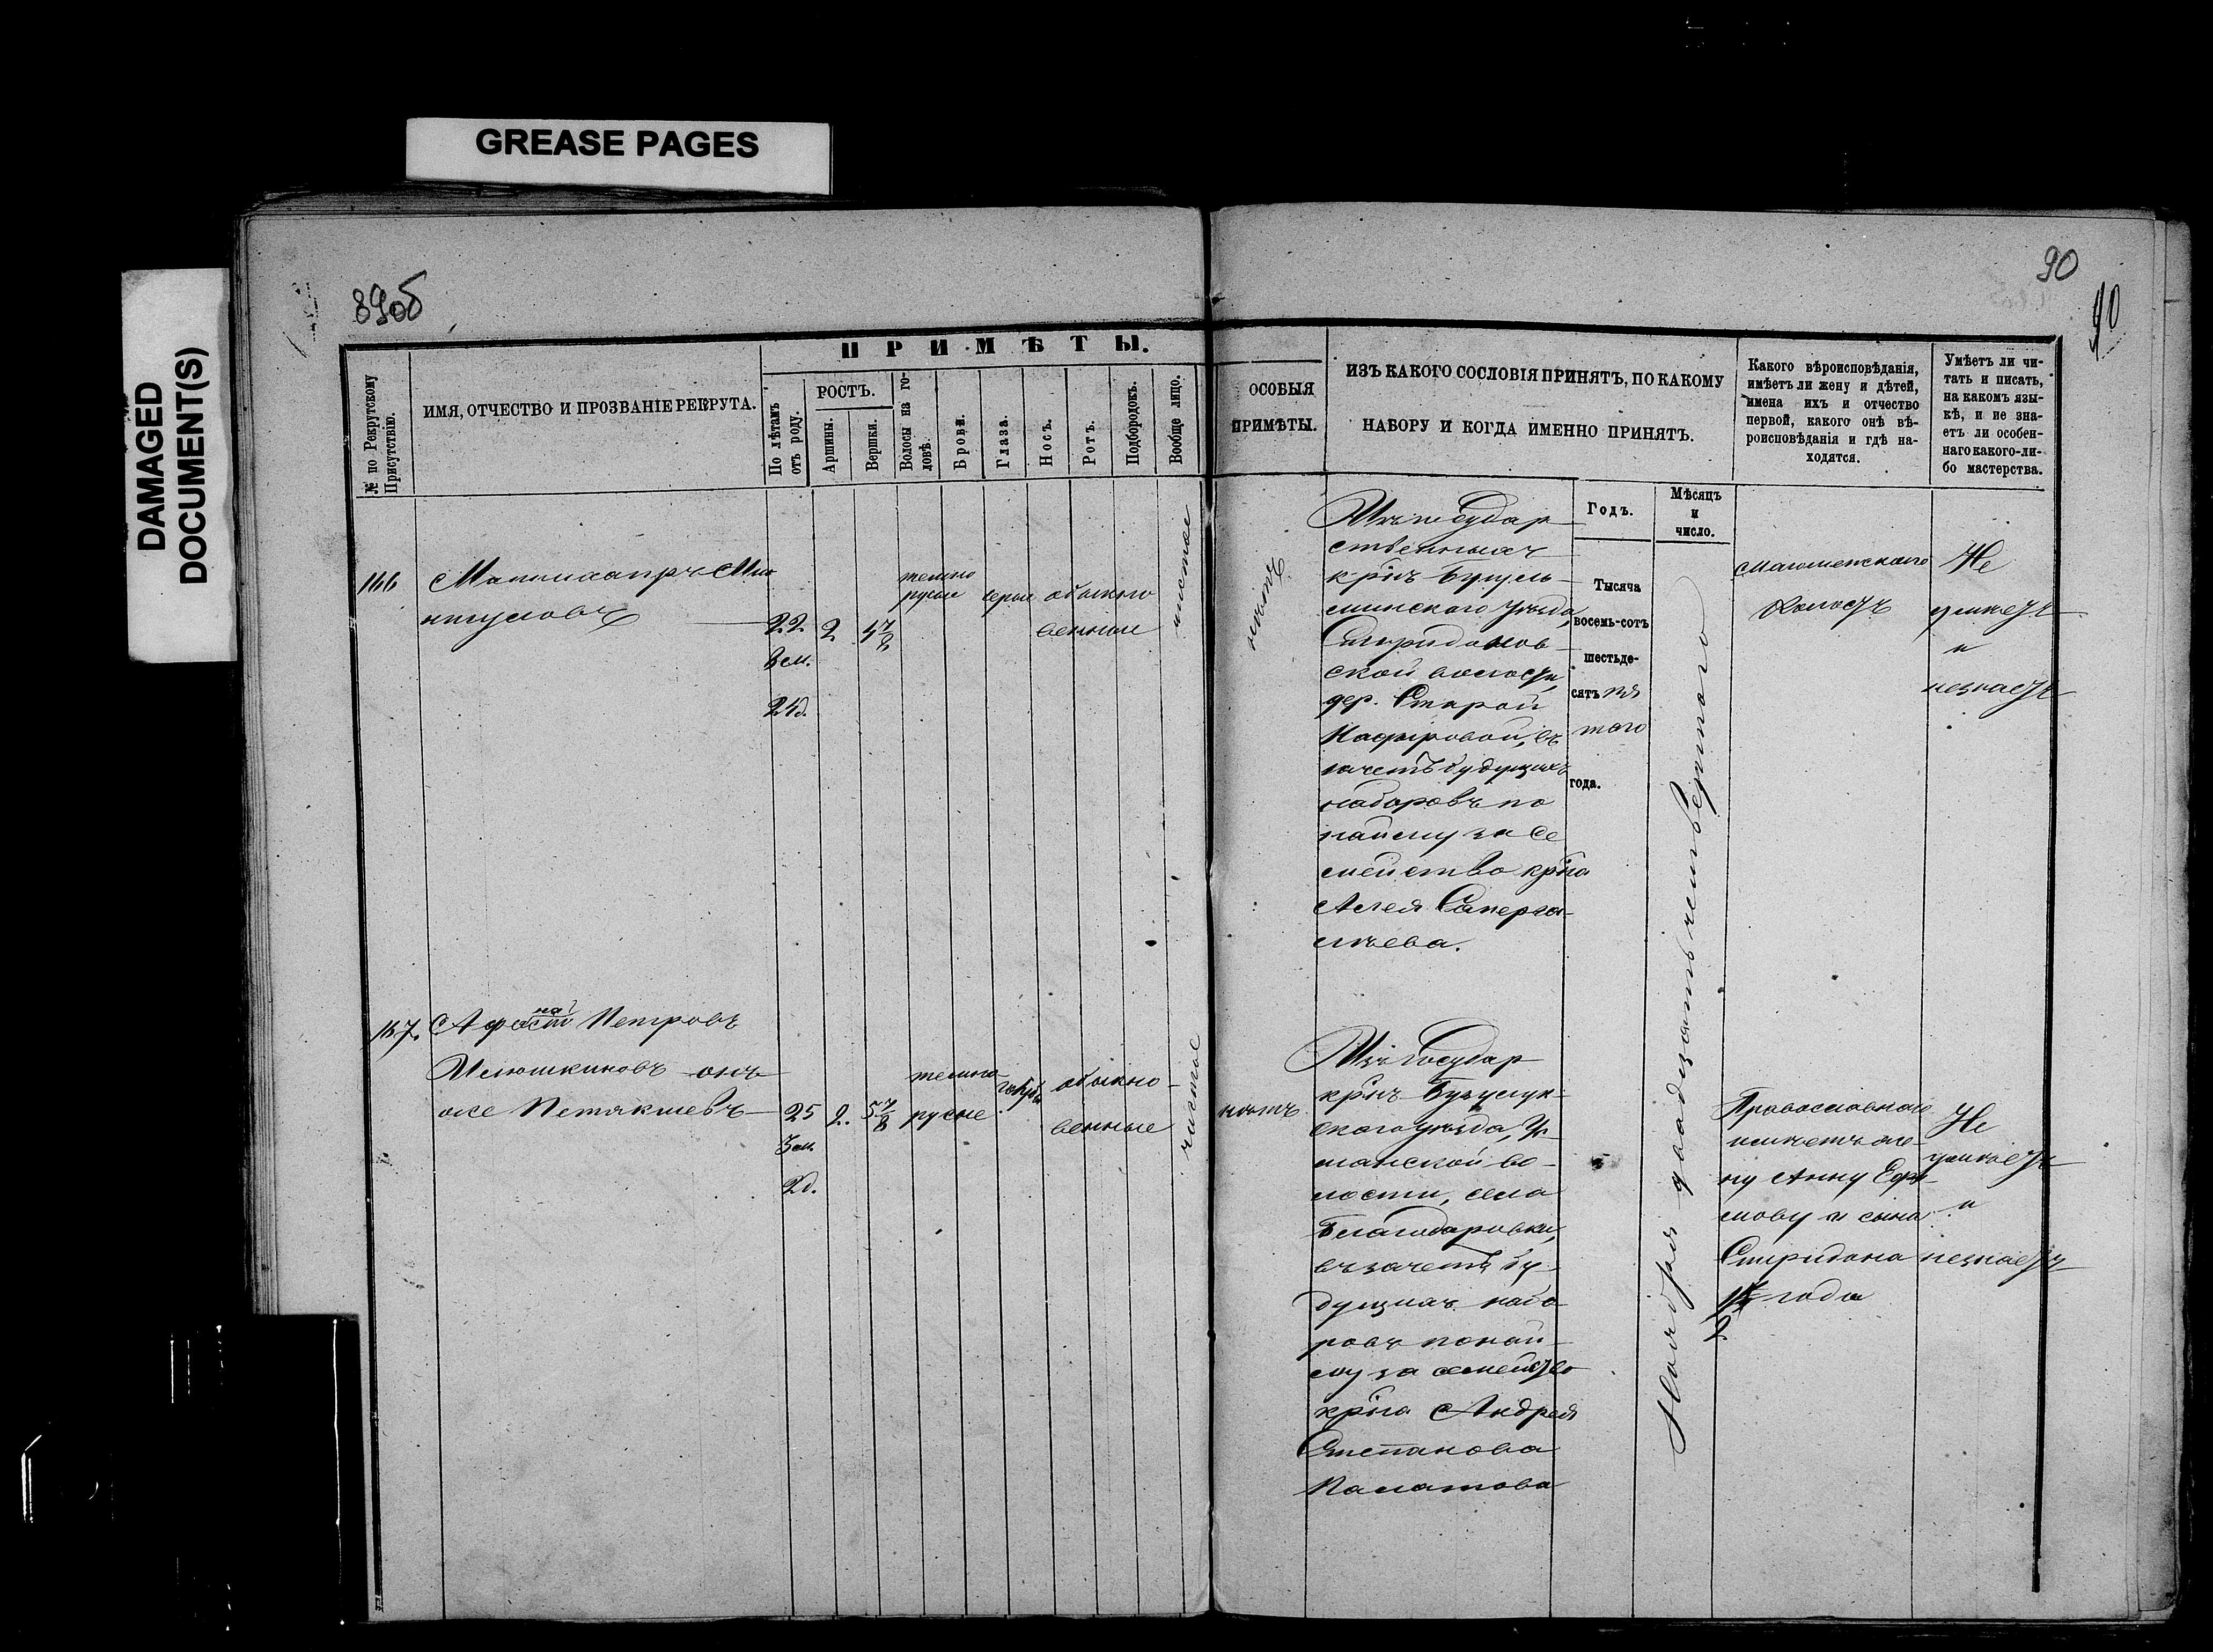 GREASE PAGES
DAMAGED
DOCUMENT(S)
89об
90
90
ПРИМѢТЫ.
№ по Рекрутскому
Присутствію.
ИМЯ, ОТЧЕСТВО И ПРОЗВАНІЕ РЕКРУТА.
По лѣтамъ
отъ роду.
РОСТЪ.
Аршины.
Вершки.
Волосы на го-
ловѣ.
Брови.
Глаза.
Носъ.
Ротъ.
Подбородокъ.
Вообще лицо.
ОСОБЫЯ
ПРИМѢТЫ.
ИЗЪ КАКОГО СОСЛОВІЯ ПРИНЯТЪ, ПО КАКОМУ
НАБОРУ И КОГДА ИМЕННО ПРИНЯТЪ.
Годъ.
Мѣсяцъ
и
число.
Какого вѣроисповѣданія,
имѣетъ ли жену и дѣтей,
имена ихъ и отчество
первой, какого онѣ вѣ-
роисповѣданія и гдѣ на-
ходятся.
Умѣетъ ли чи-
тать и писать,
на какомъ язы-
кѣ, и не зна-
етъ ли особен-
наго какого-ли-
бо мастерства.
166
22
8 м.
24 д.
2
4 7/8
темно
русые
серые
обыкно
венные
чистое
нѣтъ
Изъ государ
ственныхъ
крнъ Бугуль-
минскаго уѣзда,
Спиридонов-
ской волости,
дер. Старой
въ
зачетъ будущихъ
наборовъ по
найму за се
мейство крна
Тысяча
восемь-сотъ
шестьде-
сятъ пя
таго
года.
Ноября двадцать четвертаго
магометскаго
холостъ
Не
умѣетъ
и
незнаетъ
167.
Афанасій Петровъ
онъ
же Петякшевъ
25
3 м.
2 д.
2.
5 7/8
темно
русые
голубые
обыкно-
венные
чистое
нѣтъ
Изъ Государ
крнъ Бузулук-
скаго уѣзда,
манской во-
лости, села
Благодаровки,
въ зачетъ бу-
дущихъ набо
ровъ по най-
му за семейство
крна Андрея
Степанова
Православнаго
имѣетъ же-
ну Анну Ефи-
мову и сына
Спиридона
1/2 года
Не
умѣетъ
и
незнаетъ